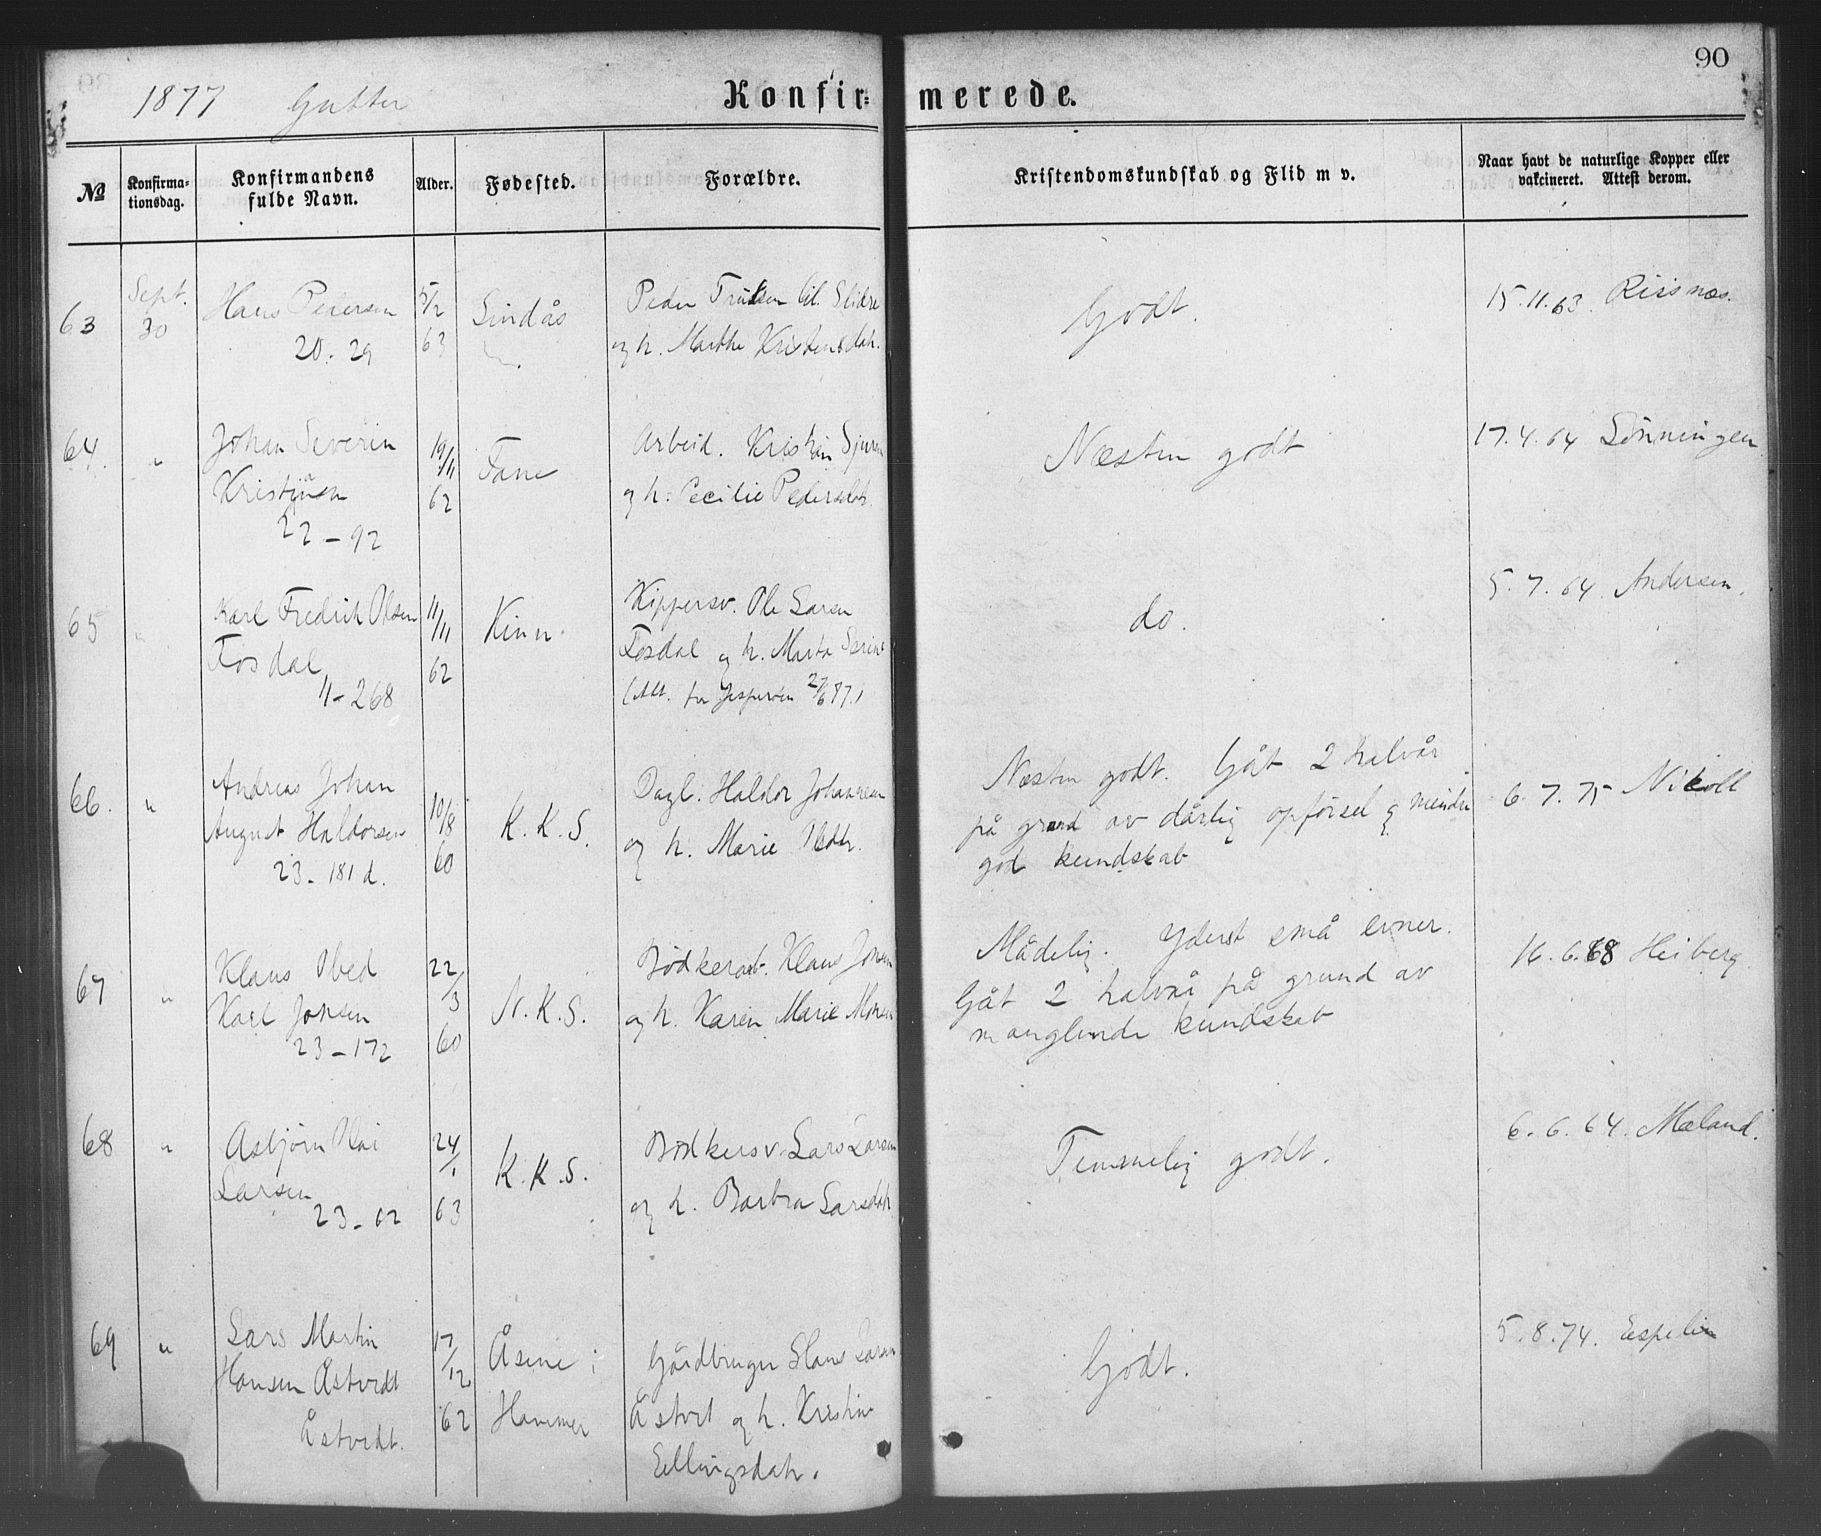 90
1877 Gutter
Konfir= merede.
№
Konfirma-
tionsdag.
Konfirmandens
fulde Navn.
Alder.
Fødested.
Forældre.
Kristendomskundskab og Flid m v.
Naar havt de naturlige Kopper eller
vakcineret. Attest derom.
63
Sept.
30
Hans Pedersen
20. 29
5/2
63
Lindås
Peder Trulsen
og h. Marthe Kristensdatr.
Godt.
15.11.63. Riisnæs.
64.
"
Johan Severin
Kristjansen
22 - 92
19/11
62
Fane
Arbeid. Kristian
og h. Cecilie Pedersdatr
Næsten godt
17.4.64 Lönningen
65
"
Karl Fredrik Olsen
Fosdal
11 - 268
11/11
62
Kinn.
Kippersv. Ole Larsen
Fosdal og h. Marta Serine
(Att. for Jespersen 27/6 87.)
do.
5.7.64 Andersen.
66.
"
Andreas Johan
August Haldorsen
23 - 181 d.
10/8
60
K. K. S.
Dagl. Haldor Johannesen
og h. Marie
Næsten godt. Gåt 2 halvår
på grund av dårlig opførsel og mindre
god kundskab
6. 7. 75 Nikoll
67
"
Klaus Obed
Karl Jonsen
23 - 172
22/3
60
N. K. S.
Bødkerarb. Klaus Jonsen
og h. Karen Marie Monsen
Mådelig. Yderst små evner.
Gåt 2 halvår på grund av
manglende kundskab
16.6.68 Heiberg
68
"
Asbjørn Olai
Larsen
23 - 62
24/1
63
K. K. S.
Bødkersv. Lars Larsen
og h. Barbra Larsdatr.
Temmelig godt.
6. 6. 64. Mæland.
69
"
Lars Martin
Hansen Åstvedt
Åstvedt.
17/12
62
Åsene i
Hammer
Gårdbruger Hans Larsen
Åstvet og h. Kristine
Ellingsdatr.
Godt.
5.8.74. Espelin